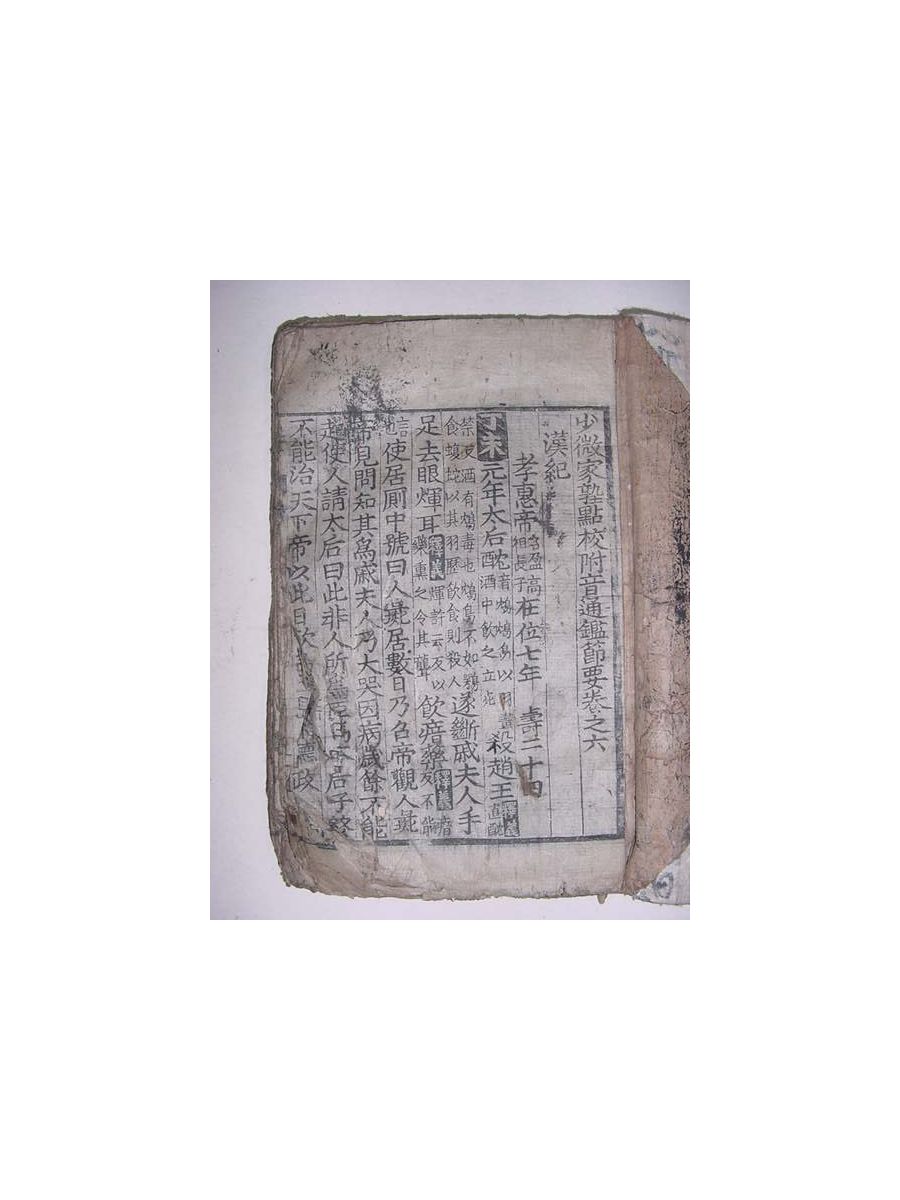 少微家塾點校附音通鑑節要卷之六
漢紀
孝惠帝名盈高祖長子在位七年 壽二十四
丁未元年太后酖酒中飲之立死殺趙王釋義直酖
禁反酒有鴆毒也鴆鳥不如鷄食蝮蛇以其羽歷飲食則殺人遂斷戚夫人手
足去眼煇耳釋義煇許云反以藥熏之令其聾飲瘖藥釋義瘖不能
言使居厠中號曰人彘居數日乃召帝觀人彘
帝見問知其爲戚夫人乃大哭因病歲餘不能
起使人請太后曰此非人所爲臣爲太后子終
不能治天下帝以此日飲聽政